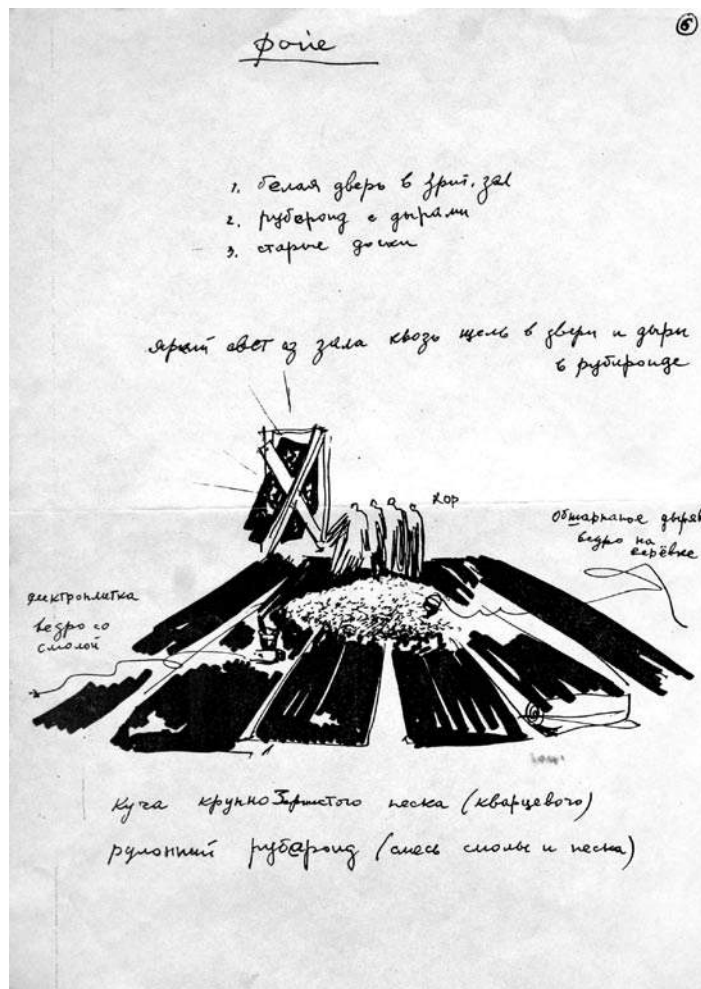 6
фойе
1. белая дверь в зрит. зал
2. рубероид с дырами
3. старые доски
яркий свет из зала сквозь щель в двери и дыры
в рубироиде
хор
Обшарканое дыряв
ведро на
верёвке
электроплитка
ведро со
смолой
Куча крупнозернистого песка (кварцевого)
рулонный рубероид (смесь смолы и песка)